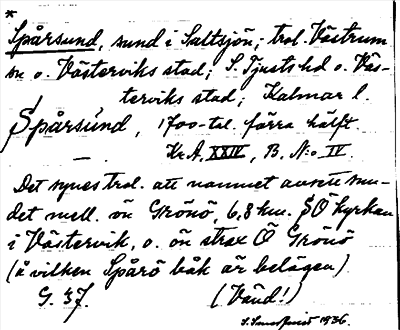 *
Spårsund, sund i Saltsjön; trol. Västrum
sn o. Västerviks stad; S. Tjusts hd o. Väs-
terviks stad; Kalmar l.
Spårsund, 1700-tal. förra hälft.
Kr. A. XXIV, B. N:o IV.
Det synes trol. att namnet avsett sun-
det mell. ön Grönö, 6,8 km. SÖ kyrkan
i Västervik, o. ön strax Ö Grönö
(å vilken Spårö båk är belägen).
G. 37. (Vänd!)
1936